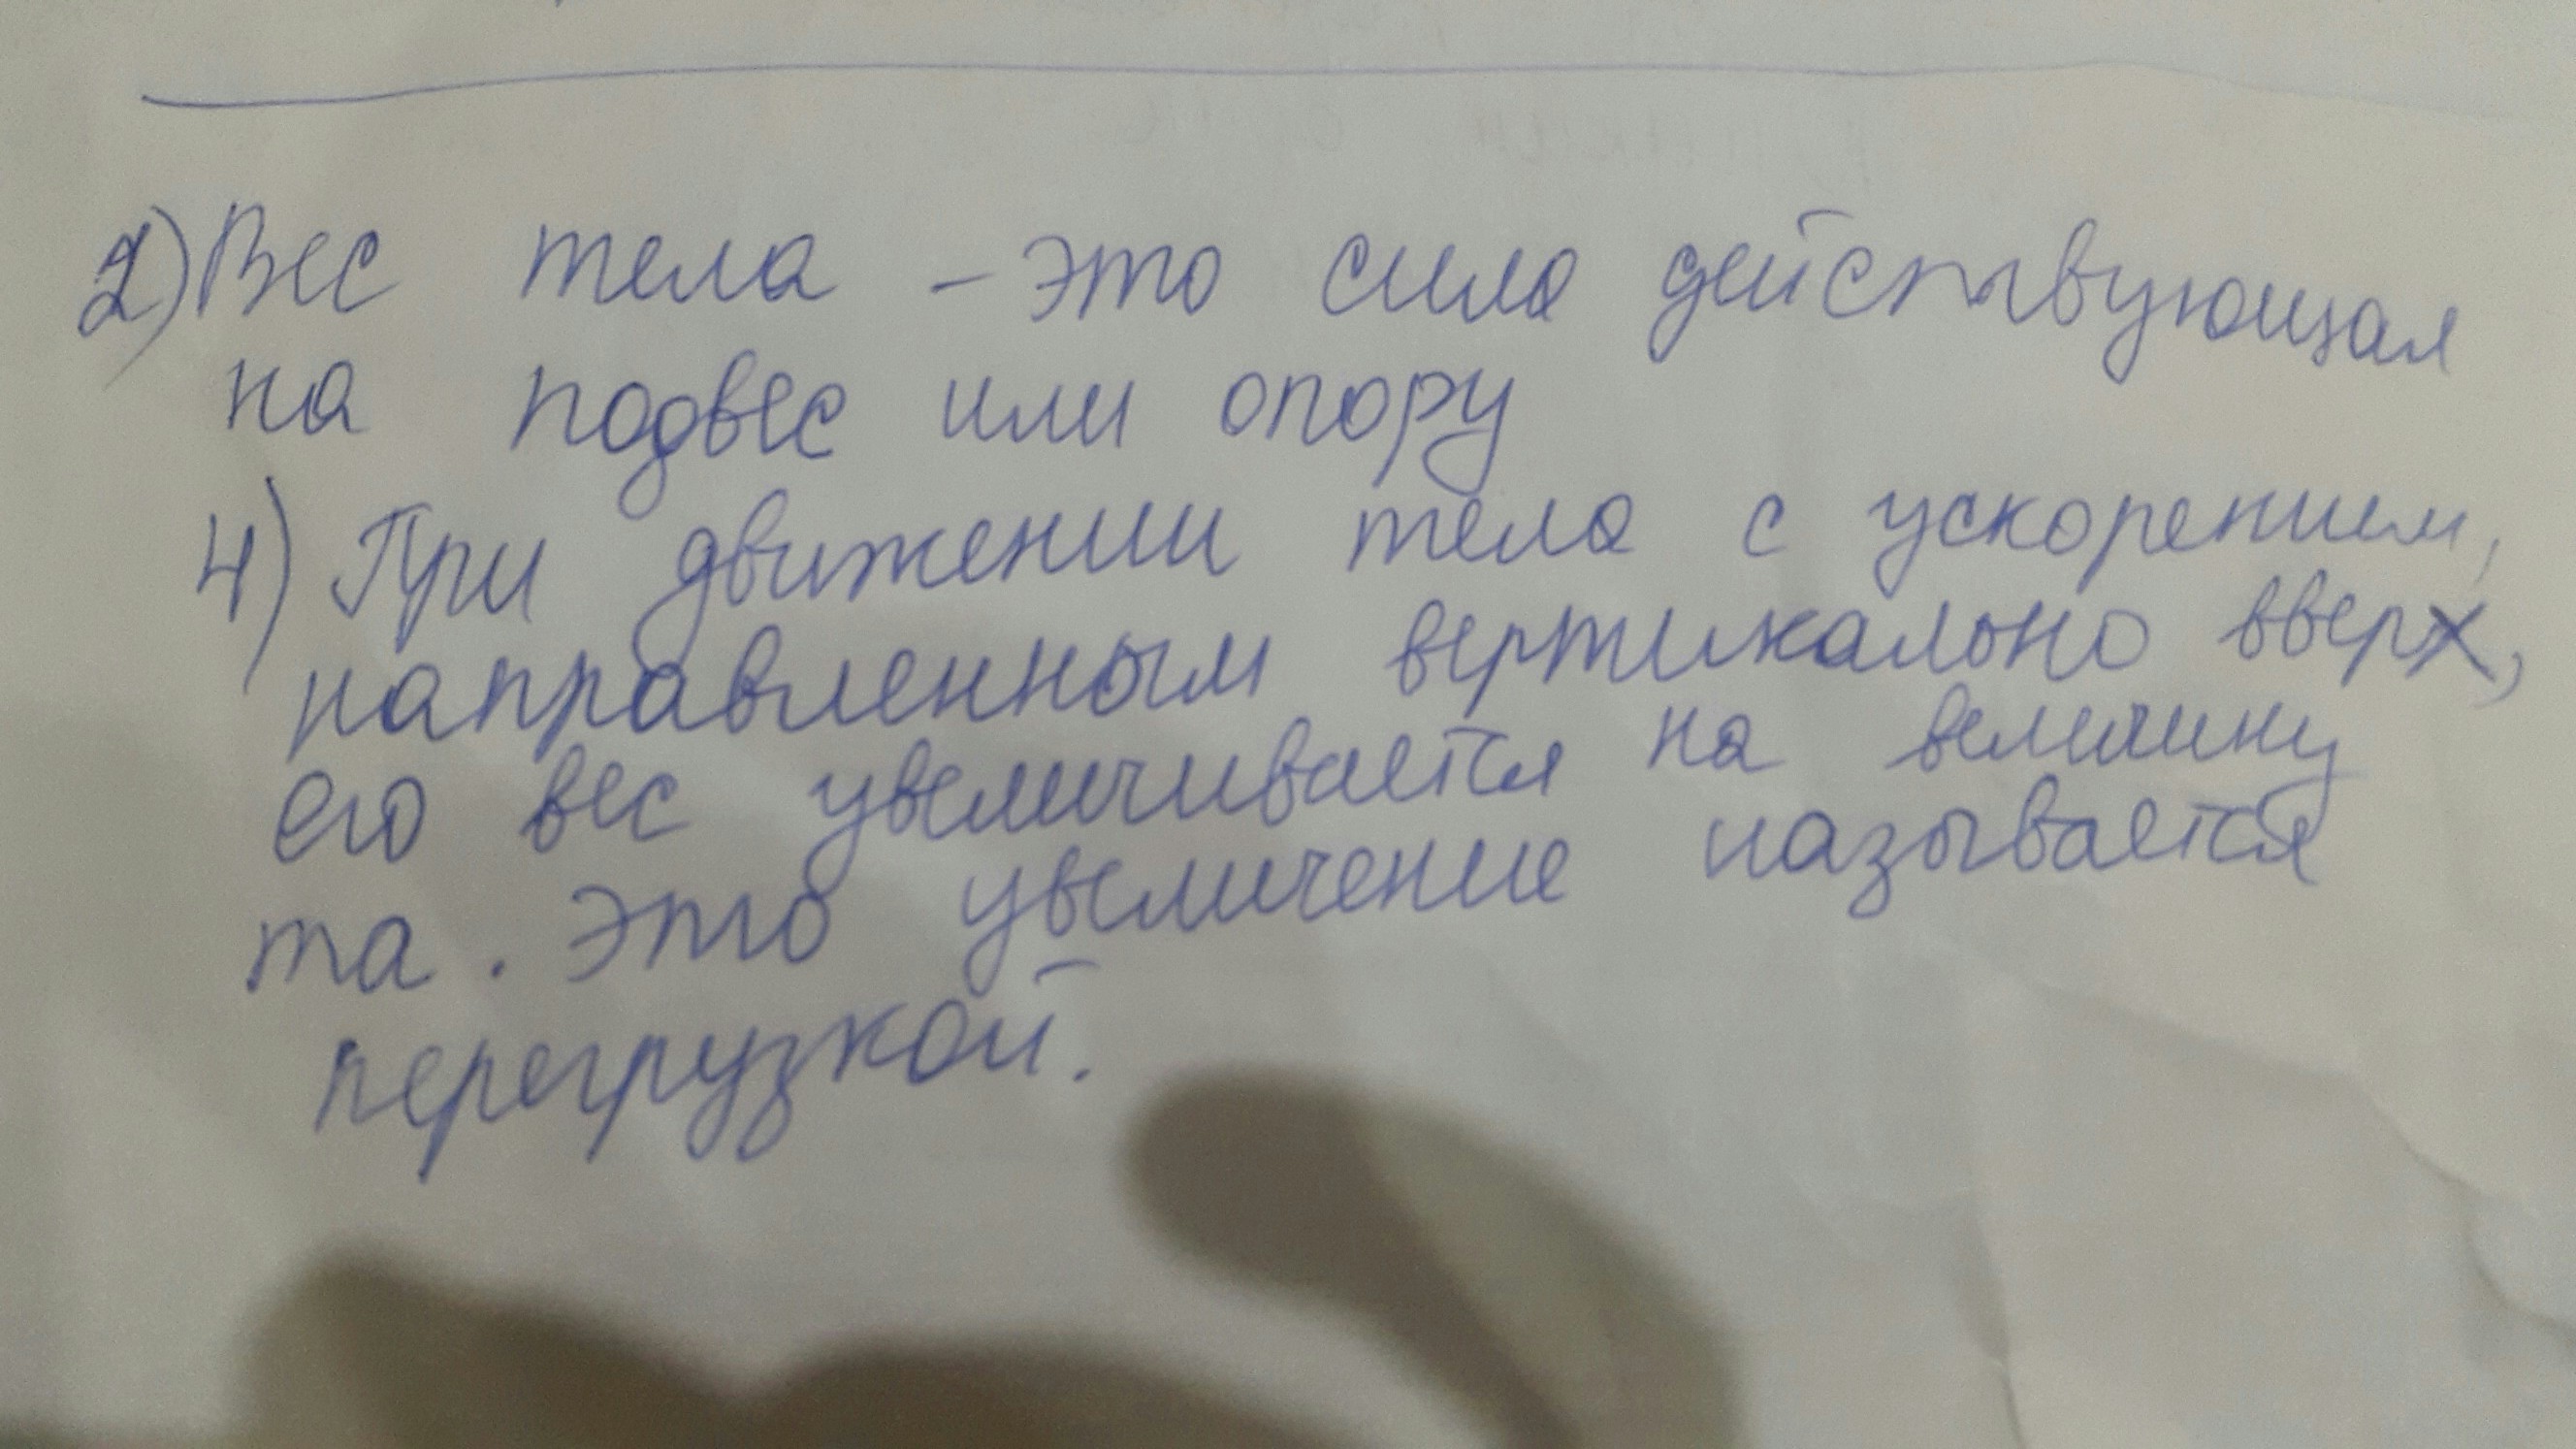 2) Вес тела – это сила действующая
на подвес или опору
4) При движении тела с ускорением,
направленным вертикально вверх,
его вес увеличивается на величину
ma. Это увеличение называется
перегрузкой.